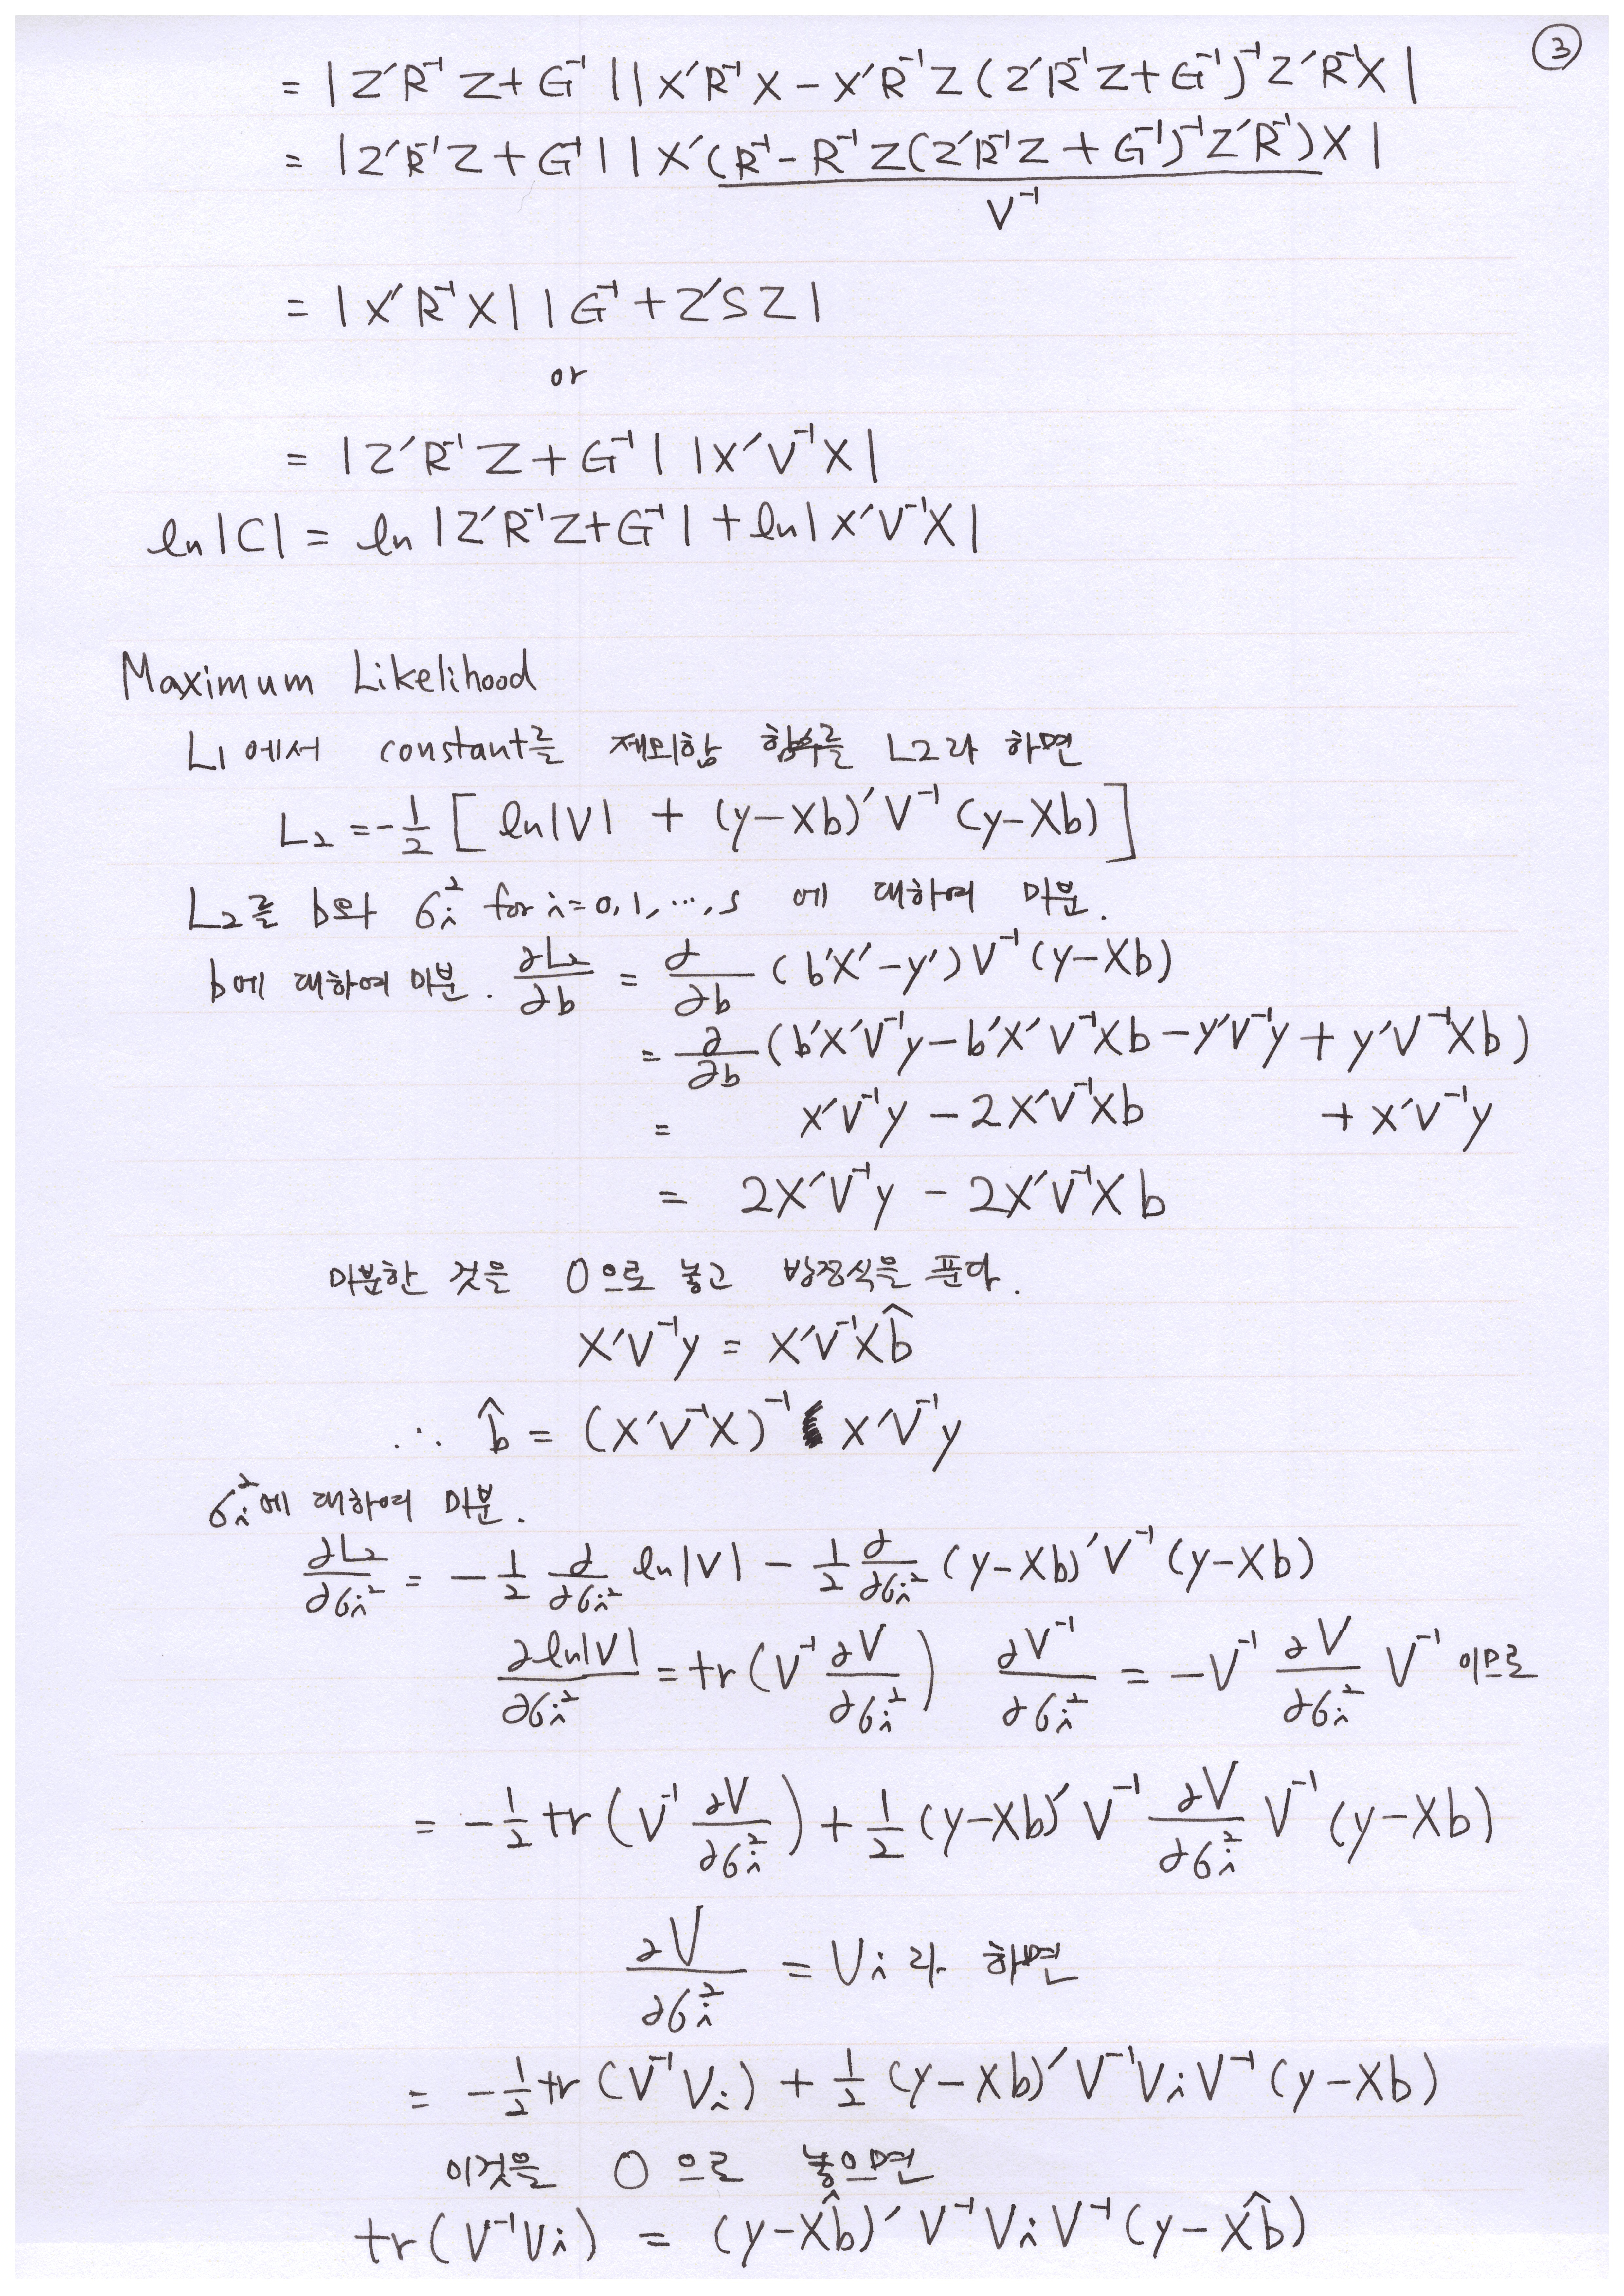 ③
= |Z′R⁻¹Z+G⁻¹||X′R⁻¹X−X′R⁻¹Z(Z′R⁻¹Z+G⁻¹)⁻¹Z′R⁻¹X|
= |Z′R⁻¹Z+G⁻¹||X′(R⁻¹−R⁻¹Z(Z′R⁻¹Z+G⁻¹)⁻¹Z′R⁻¹)X|
V⁻¹
= |X′R⁻¹X||G⁻¹+Z′SZ|
or
= |Z′R⁻¹Z+G⁻¹||X′V⁻¹X|
ln|C| = ln|Z′R⁻¹Z+G⁻¹|+ln|X′V⁻¹X|
Maximum Likelihood
L1에서 constant를 제외함 함수를 L2라 하면
L₂ = −½[ln|V| + (y−Xb)′V⁻¹(y−Xb)]
L₂를 b와 σᵢ² for i=0,1,…,s 에 대하여 미분.
b에 대하여 미분. ∂L₂/∂b = ∂/∂b (b′X′−y′)V⁻¹(y−Xb)
= ∂/∂b (b′X′V⁻¹y−b′X′V⁻¹Xb−y′V⁻¹y+y′V⁻¹Xb)
= X′V⁻¹y − 2X′V⁻¹Xb + X′V⁻¹y
= 2X′V⁻¹y − 2X′V⁻¹Xb
미분한 것을 0으로 놓고 방정식을 푼다.
X′V⁻¹y = X′V⁻¹Xb̂
∴ b̂ = (X′V⁻¹X)⁻¹ X′V⁻¹y
σᵢ²에 대하여 미분.
∂L₂/∂σᵢ² = −½ ∂/∂σᵢ² ln|V| − ½ ∂/∂σᵢ² (y−Xb)′V⁻¹(y−Xb)
∂ln|V|/∂σᵢ² = tr(V⁻¹ ∂V/∂σᵢ²) ∂V⁻¹/∂σᵢ² = −V⁻¹ ∂V/∂σᵢ² V⁻¹ 이므로
= −½tr(V⁻¹ ∂V/∂σᵢ²) + ½(y−Xb)′V⁻¹ ∂V/∂σᵢ² V⁻¹(y−Xb)
∂V/∂σᵢ² = Vᵢ라 하면
= −½tr(V⁻¹Vᵢ) + ½(y−Xb)′V⁻¹VᵢV⁻¹(y−Xb)
이것을 0으로 놓으면
tr(V⁻¹Vᵢ) = (y−Xb̂)′V⁻¹VᵢV⁻¹(y−Xb̂)